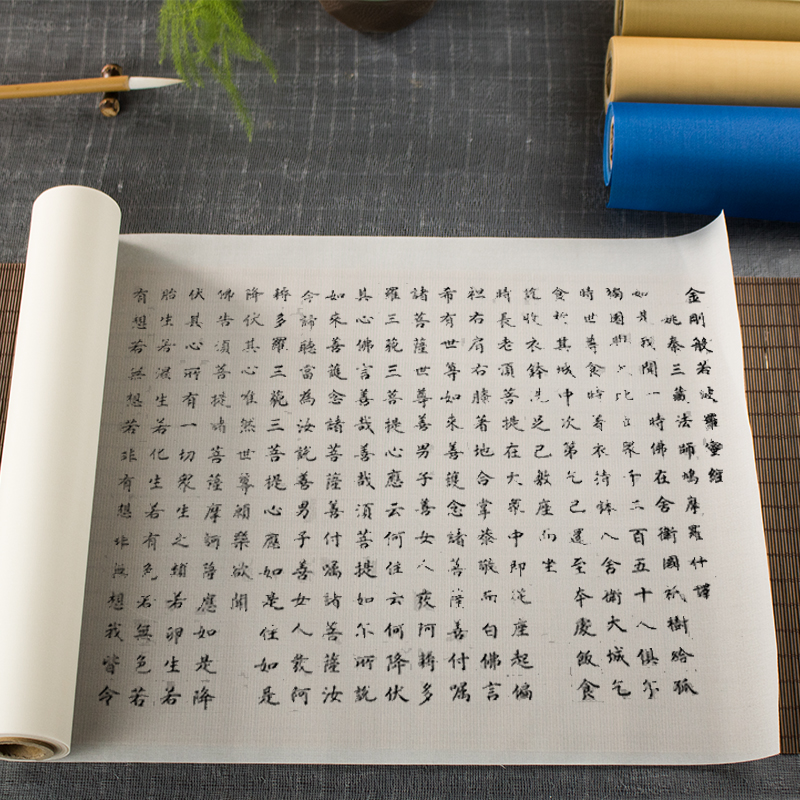 金剛般若波羅蜜經
姚秦三藏法師鳩摩羅什譯
如是我聞一時佛在舍衛國祇樹給孤
獨園與大比丘眾千二百五十人俱尒
時世尊食時着衣持鉢入舍衛大城乞
食於其城中次第乞已還至本處飯食
訖收衣鉢洗足已敷座而坐
時長老須菩提在大眾中即從座起偏
袒右肩右膝著地合掌恭敬而白佛言
希有世尊如來善護念諸菩薩善付囑
諸菩薩世尊善男子善女人發阿耨多
羅三藐三菩提心應云何住云何降伏
其心佛言善哉善哉須菩提如尒所說
如來善護念諸菩薩善付囑諸菩薩汝
今諦聽當為汝說善男子善女人發阿
耨多羅三藐三菩提心應如是住如是
降伏其心唯然世尊願樂欲聞
佛告須菩提諸菩薩摩訶薩應如是降
伏其心所有一切眾生之類若卵生若
胎生若濕生若化生若有色若無色若
有想若無想若非有想非無想我皆令